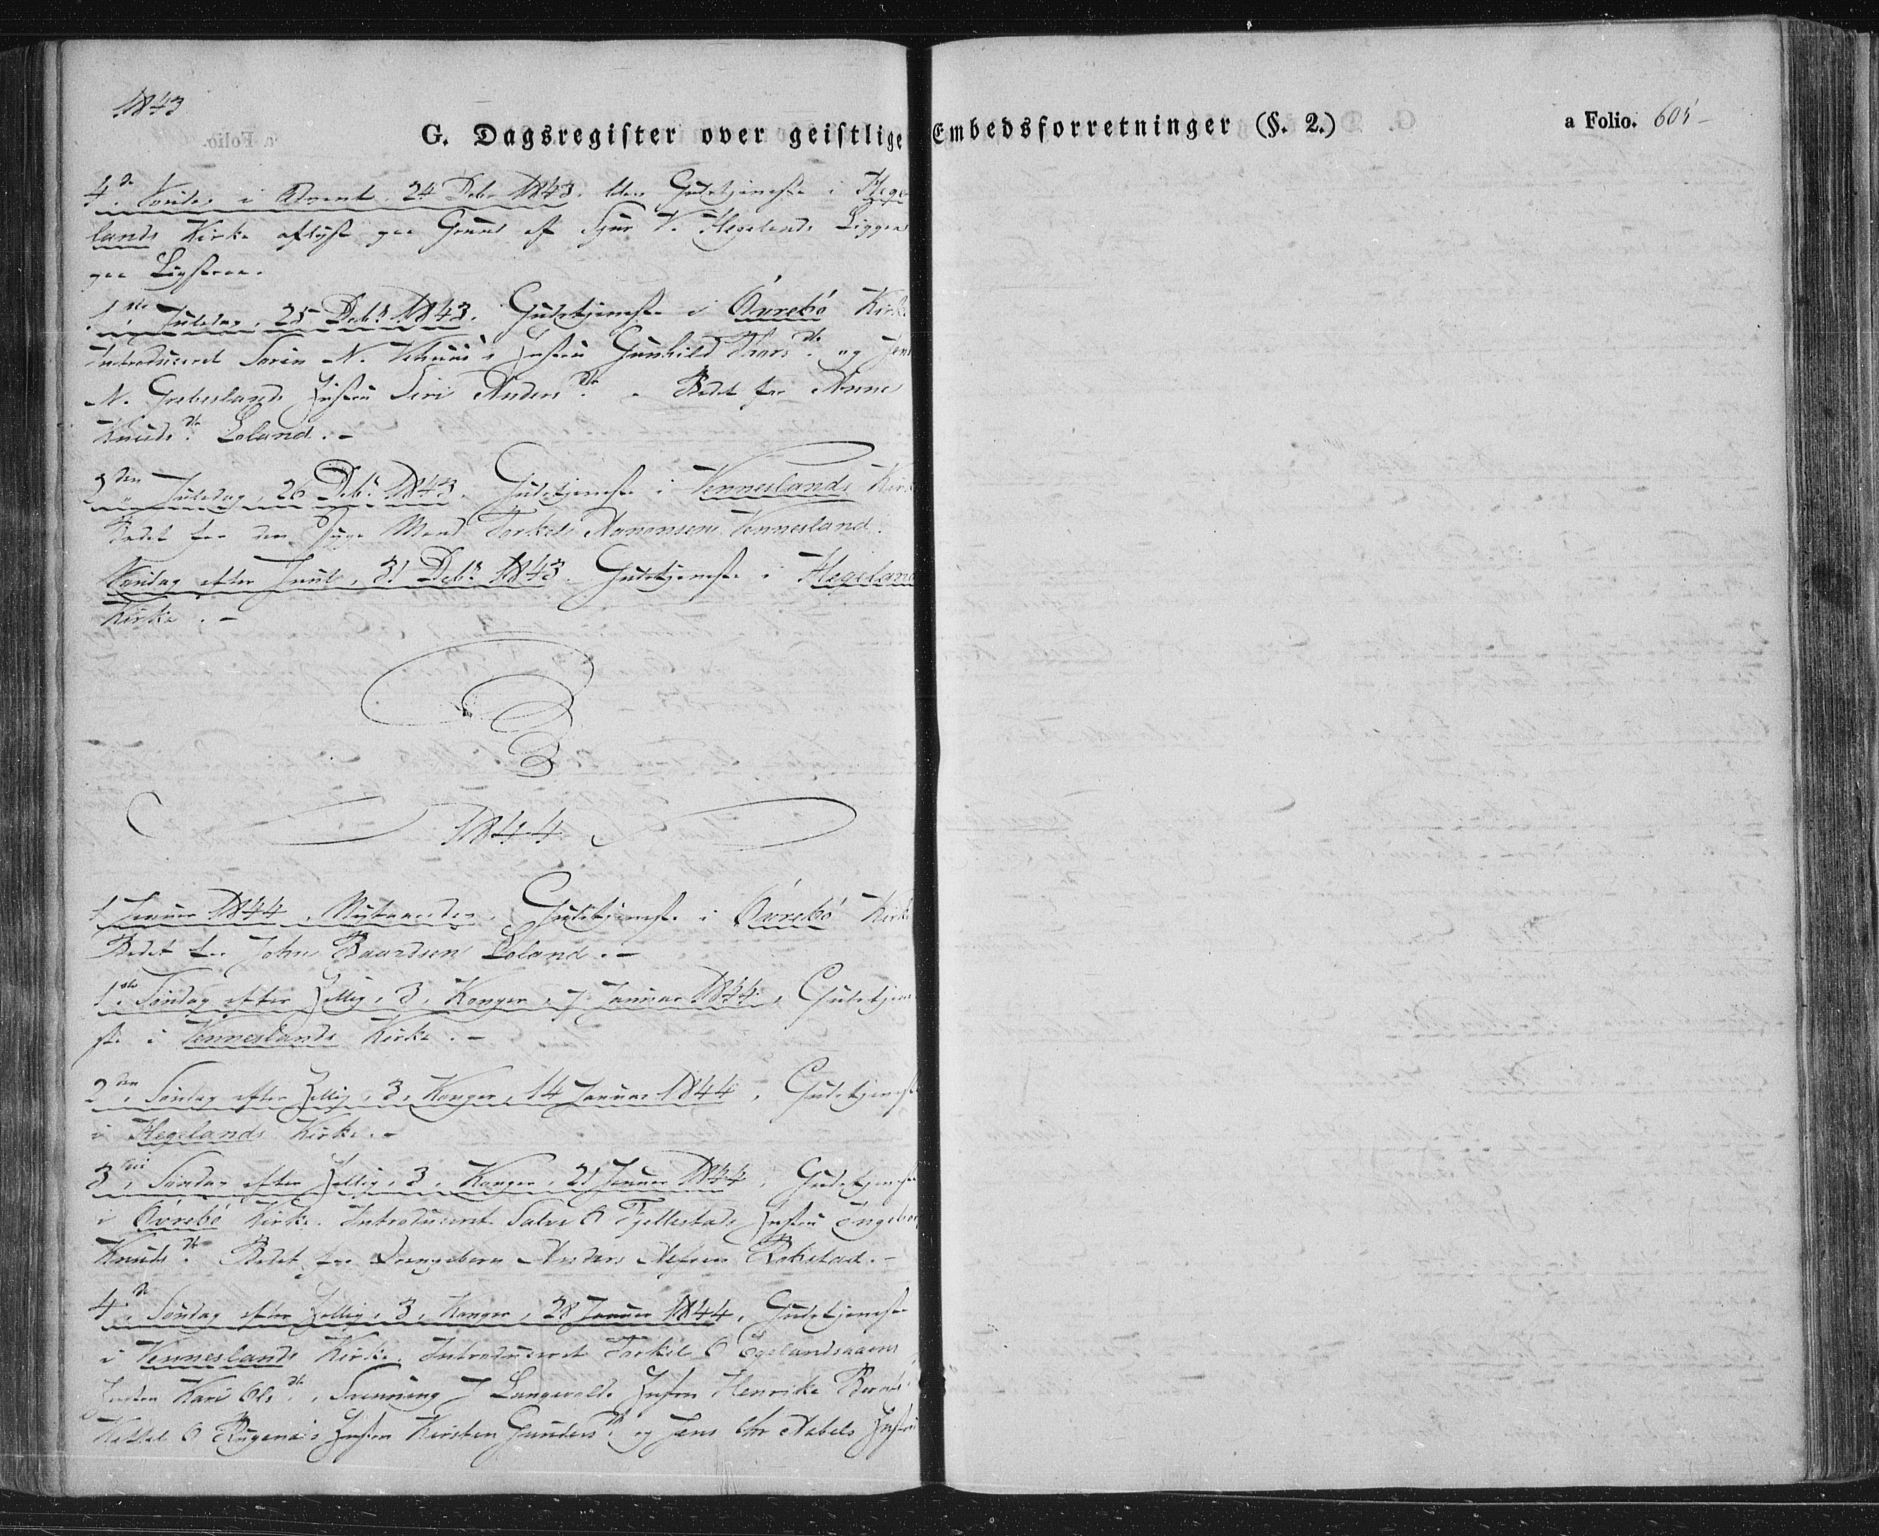 1843
G. Dagsregister over geistlige Embedsforretninger (§. 2.) a Folio. 605
4de Søndag i Advent, 24 Debr 1843, blev Gudstjeneste i Hege
lands Kirke aflyst paa Grund af Sjur V. Hegelands Liggen
paa Ligstraa.
1ste Juledag, 25 Debr 1843. Gudstjeneste i Øvrebø Kirke
Introduceret Søren N. Hustru Gunhild Thorsdtr og Jens
N. Greibeslands Hustru Siri Andersdtr. - Bedet for Anne
Knudsdtr Loland. -
2den Juledag, 26 Debr 1843. Gudstjeneste i Venneslands Kirk
Bedet for den syge Mand Torkel Aanonsen Vennesland.
Søndag efter Juul, 31 Debr 1843. Gudstjeneste i Hegeland
Kirke. -
1844
1 Januar 1844, Nytaarsdag. Gudstjeneste i Øvrebø Kirke
Bedet for John Baardsen Loland. -
1ste Søndag efter Hellig, 3, Konger, 7 Januar 1844, Gudstjene
ste i Venneslands Kirke. -
2den Søndag efter Hellig, 3, Konger, 14 Januar 1844, Gudstjeneste
i Hegelands Kirke. -
3die Søndag efter Hellig, 3, Konger, 21 Januar 1844, Gudstjeneste
i Øvrebø Kirke. Introduceret Salve O Fjellestads Hustru Ingebor
Knudsdtr. Bedet for Drengebarn Anders Rokstad. -
4de Søndag efter Hellig, 3, Konger, 28 Januar 1844, Gudstjeneste
i Venneslands Kirke. Introduceret Torkel O Egelandsaaens
Hustru Kari Olsdtr, J Langevolds Hustru Henrike Bernts
O Hustru Kirsten Gundersdtr og Jens Chr Nabels Hustru